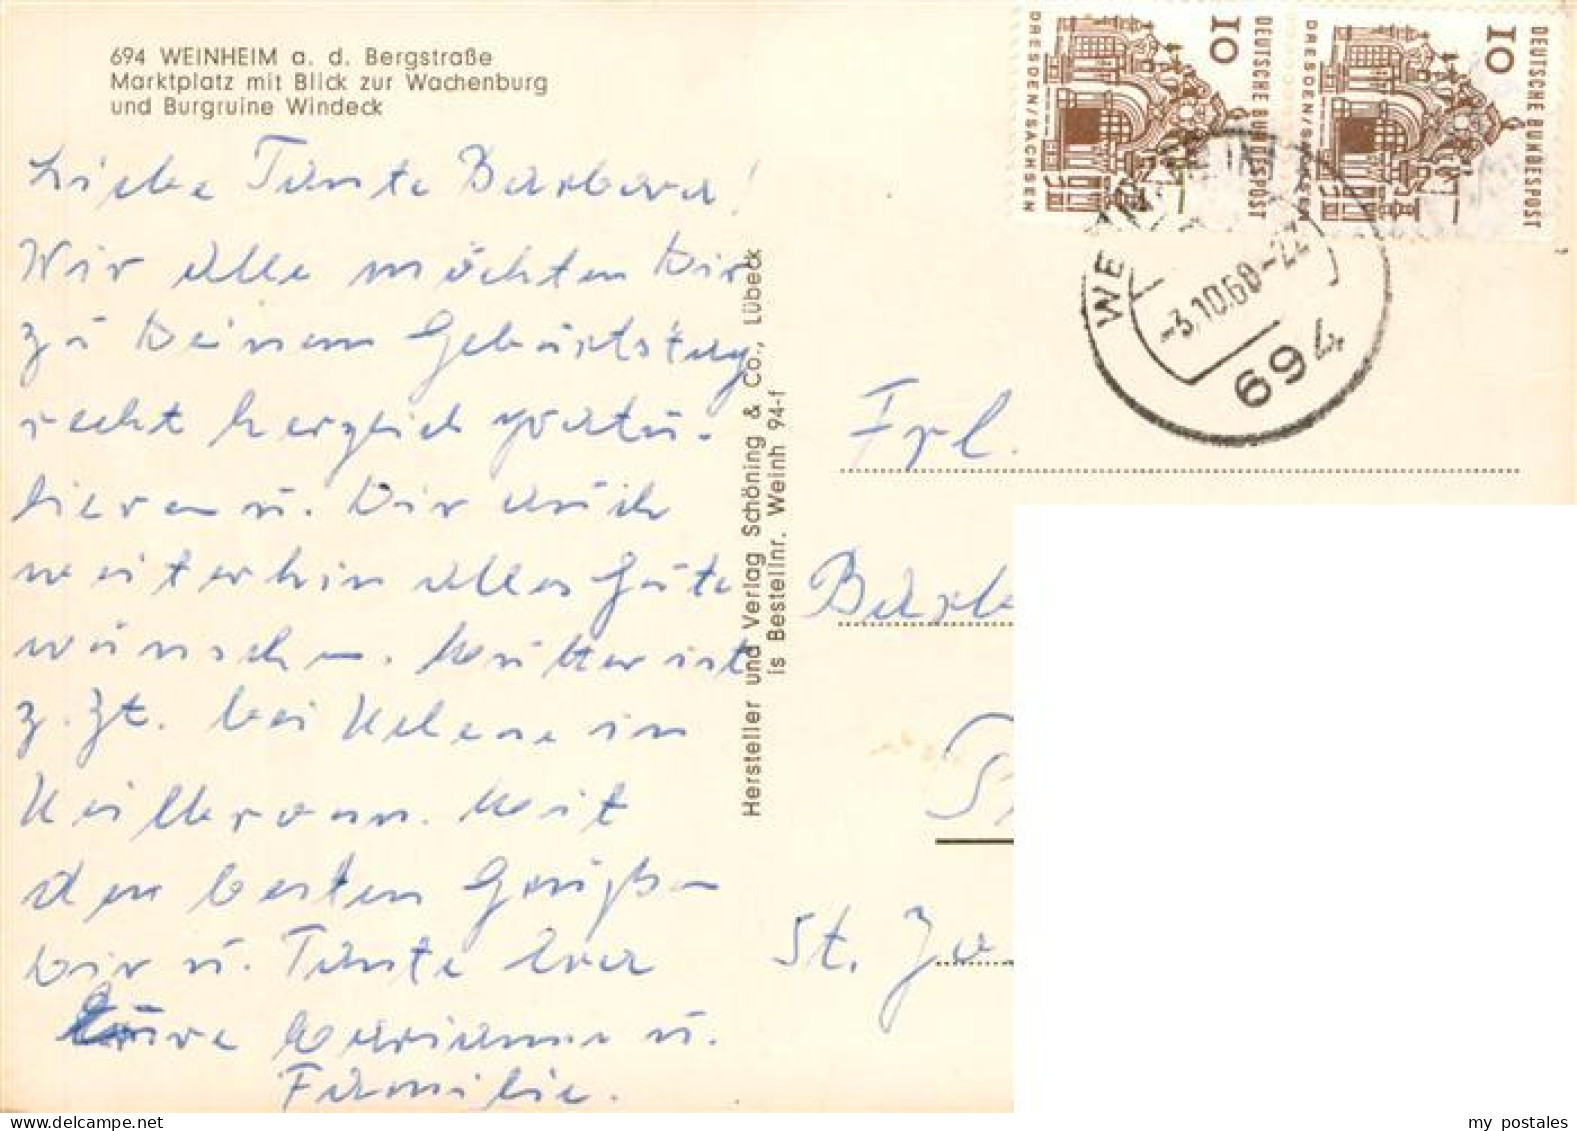 694 WEINHEIM a. d. Bergstraße
Marktplatz mit Blick zur Wachenburg
und Burgruine Windeck
Liebe Tante Barbara!
Wir alle möchten Dir
zu Deinem Geburtstag
recht herzlich gratu-
lieren u. Dir auch
weiterhin alles Gute
wünschen. Mutter ist
z. Zt. bei Helene in
Heilbronn. Mit
den besten Grüßen
wir u. Tante Eva
Eure Marianne u.
Familie.
Hersteller und Verlag Schöning & Co., Lübeck
is Bestellnr. Weinh 94-f
10
DEUTSCHE BUNDESPOST
DRESDEN/SACHSEN
10
DEUTSCHE BUNDESPOST
DRESDEN/SACHSEN
-3.10.68-22
694
Frl.
Barb
St
St. Jo
my postales
www.delcampe.net